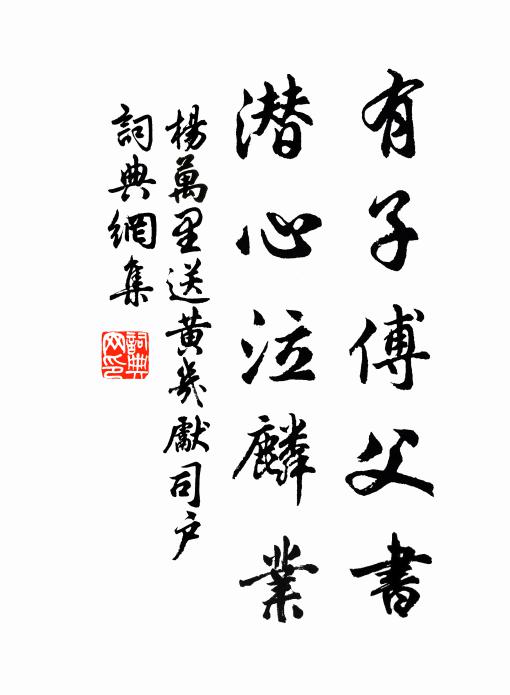 有子傅父書
潜心泣麟業
楊萬里送黄岁獻司户
詞典網集
詞典
网印